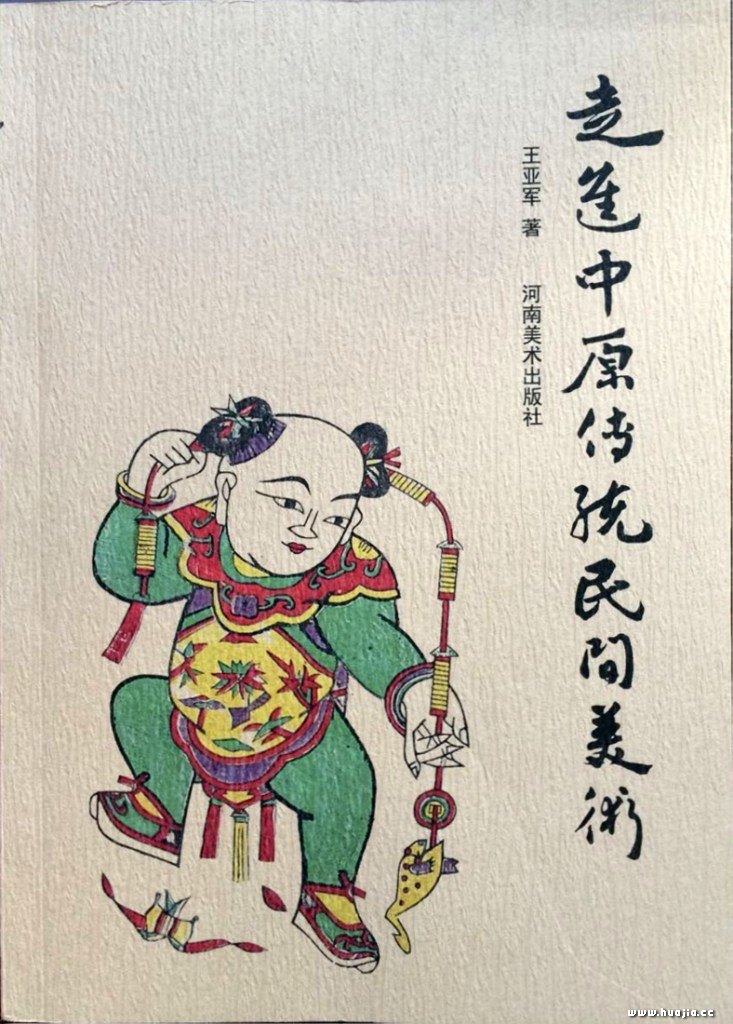 走進中原传统民间美術
王亚军 著 河南美术出版社
www.huajia.cc